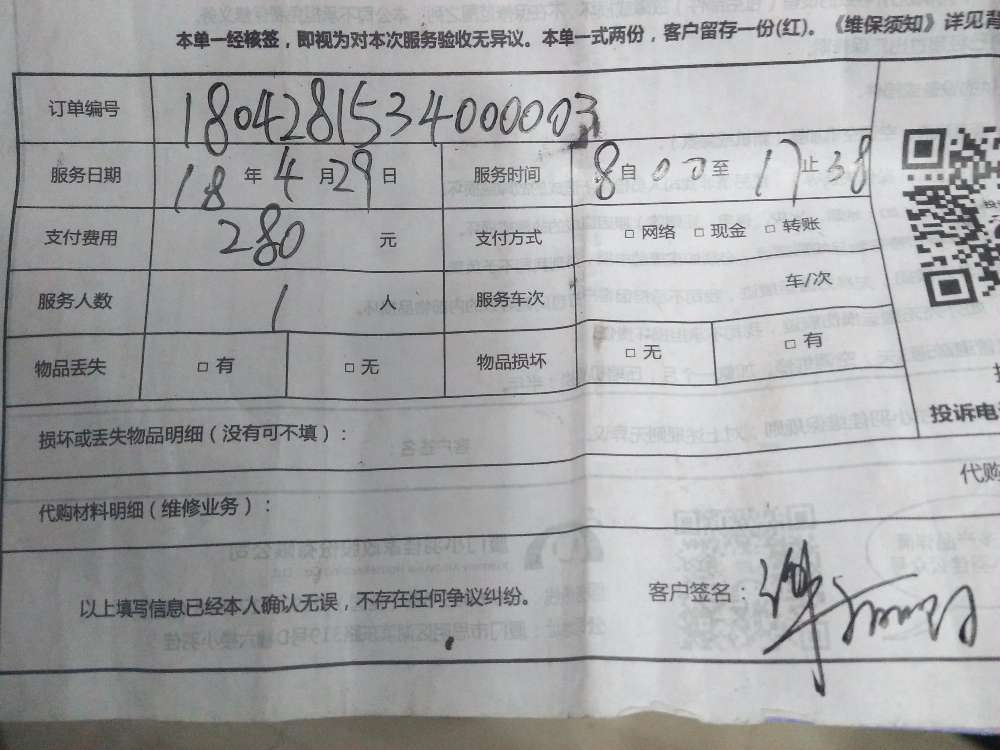 本单一经核签，即视为对本次服务验收无异议。本单一式两份，客户留存一份(红)。《维保须知》详见背
订单编号 1804281534000003
服务日期 18年4月29日 服务时间 8自00至17止38
支付费用 280元 支付方式 □ 网络 □ 现金 □ 转账
服务人数 1人 服务车次 车/次
物品丢失 □ 有 □ 无 物品损坏 □ 无 □ 有
投诉电
损坏或丢失物品明细（没有可不填）：
代购
代购材料明细（维修业务）：
以上填写信息已经本人确认无误，不存在任何争议纠纷。 客户签名：